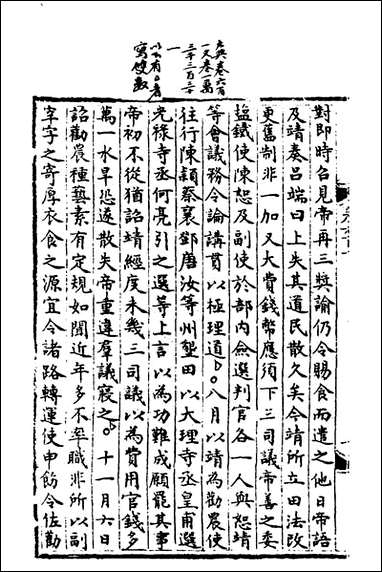 大典卷六百
一又卷一萬
三千三百三十
一
以有。者
寫使敷
對即時召見帝再三獎諭仍令賜食而遣之他日帝語
及靖奏吕端曰上失其道民散久矣今靖所立田法改
更舊制非一加又大費錢幣應須下三司議帝善之委
鹽鐵使陳恕及副使於部内僉選判官各一人與恕靖
等會議務令論講貫以極理道。八月以靖為勸農使
往行陳頴蔡襄鄧唐汝等州墾田以大理寺丞皇甫選
光祿寺丞何亮引之選等上言以為功難成願罷其事
帝初不從猶詔靖經度未幾三司議以為費用官錢多
萬一水旱恐遂散失帝重違羣議寢之。十一月六日
詔勸農種藝素有定規如聞近年多不率職非所以副
字字之寄厚衣食之源宜令諸路轉運使申飭令佐勸